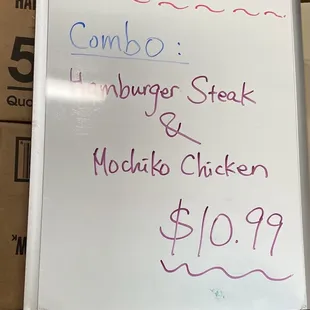 Combo :
Hamburger Steak
&
Mochiko Chicken
$10.99
5